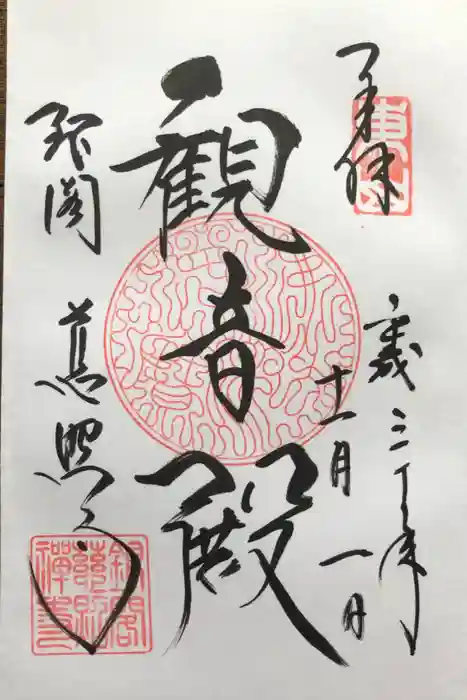 奉拝
東山
平成三十年
十一月一日
観音殿
銀閣
慈照寺
銀閣
慈照
禅寺